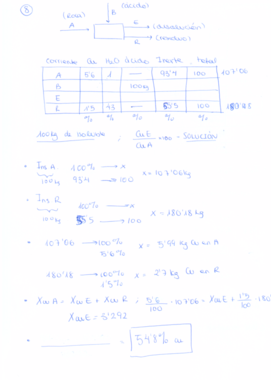 8
(ácido)
(rosa)
B
A
E (disolución)
R (residuo)
corriente Cu H2O ácido Inerte Total
A 5'6 1 — 93'4 100 107'06
B 100kg
E
R 1'5 43 — 55'5 100 180'18
% % % % %
CuE
CuA
·100 → SOLUCIÓN
· Ins A 100% → x
100kg 93'4 → 100 x = 107'06kg
· Ins R 100% → x
100kg 55'5 → 100 x = 180'18kg
· 107'06 → 100%
5'6% x = 5'99 kg Cu en A
· 180'18 → 100%
1'5% x = 2'7kg Cu en R
· XCuA = XCuE + XCuR = 5'6/100 · 107'06 = XCuE + 1'5/100 · 180
XCuE = 3'292
· = 54'8% Cu